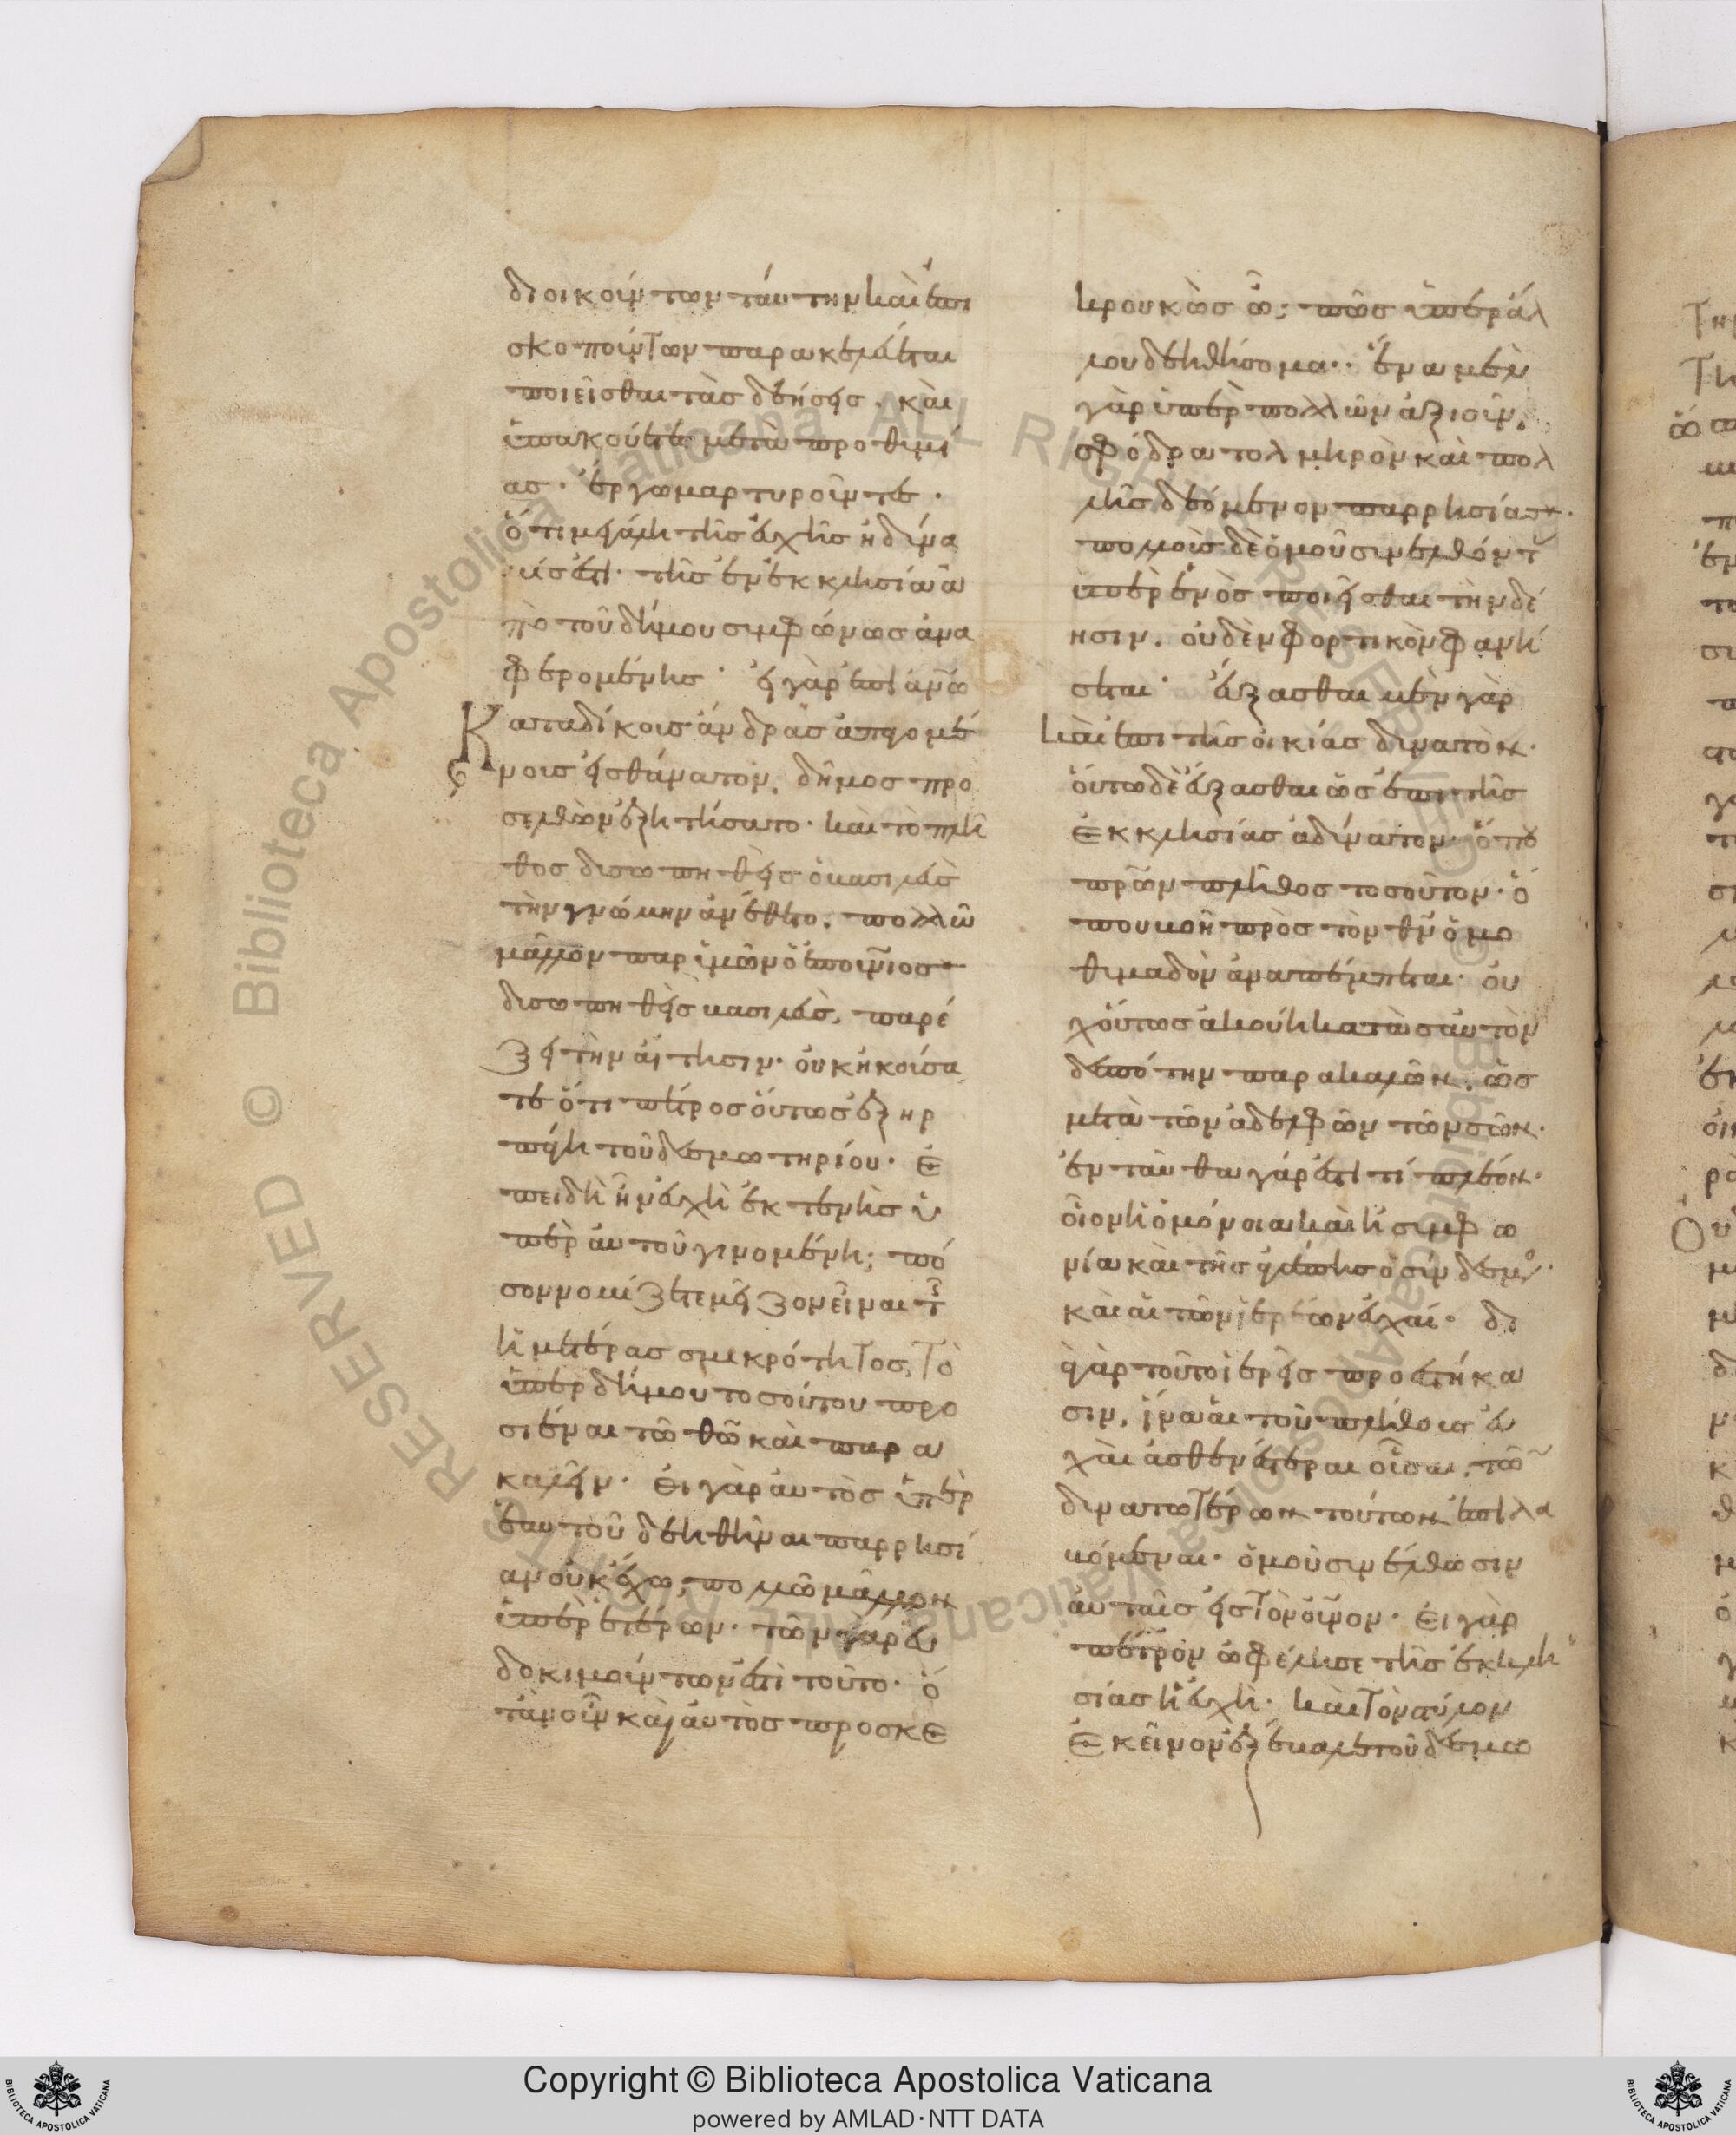 διοικούντων ταύτην καὶ ἐπι
σκοπούντων παρακελεύεται
ποιεῖσθαι τὰς δεήσεις. καὶ
ὑπακούετε μετὰ προθυμί
ας. ἔργω μαρτυροῦντες.
ὅτι μεγάλη τῆς εὐχῆς ἡ δύνα
μίς ἐστι τῆς ἐν ἐκκλησία ἀ
πὸ τοῦ δήμου συμφώνως ἀνα
φερομένης. εἰ γὰρ ἐπὶ ἀνῶ
καταδίκοις ἀνδράσ ἀπαγομέ
νοις εἰς θάνατον. δῆμος προ
σελθὼν ἐξητήσατο. καὶ τὸ πλῆ
θος δυσωπηθεὶς ὁ βασιλεὺς
τὴν γνώμην ἀνέθετο. πολλῶ
μᾶλλον παρ ὑμῶν ὁ ἐπουνιος
δυσωπηθεὶς βασιλεὺς, παρέ
ξει τὴν αἴτησιν. οὐκ ἠκούσα
τε ὅτι πέτρος οὕτως ἐξηρ
πάγη τοῦ δεσμωτηρίου. ἐ
πειδὴ ἦν εὐχὴ ἐκτενὴς ὑ
πὲρ αὐτοῦ γινομένη; πό
σον νομίζετε μεῖζον εἶναι τ
ἡμετέρας σμικρότητος, τὸ
ὑπὲρ δήμου τοσούτου προ
σιέναι τῶ θῶ καὶ παρα
καλεῖν. εἰ γὰρ αὐτὸς ὑπὲρ
ἐαυτοῦ δεηθῆναι παρρησί
αν οὐκ ἔχω, πολλῶ μᾶλλον
ὑπὲρ ἑτέρων. τῶν γὰρ εὐ
δοκιμούντων ἐστὶ τοῦτο. ὁ
τὰν οὖν καὶ αὐτὸς προσκε
κρουκὼς ὦ; πῶς ὑπὲρ ἄλ
λου δεηθήσομαι. ἕνα μὲν
γὰρ ὑπὲρ πολλῶν ἀξιοῦν,
σφόδρα τολμηρὸν καὶ πολ
λῆς δεόμενον παρρησίας.
πολλοὺς δὲ ὁμοῦ συνελθόντ
ὑπὲρ ἑνὸς ποιεῖσθαι τὴν δέ
ησιν. οὐδὲν φορτικὸν φανή
σεται. εὔξασθαι μὲν γὰρ
καὶ ἐπὶ τῆς οἰκίας δυνατὸν.
οὕτω δὲ εὔξασθαι ὡς ἐπὶ τῆς
ἐκκλησίας ἀδύνατον. ὅπου
πρῶν πλῆθος τοσοῦτον. ὅ
που βοὴ πρὸς τὸν θν ὁμο
θυμαδὸν ἀναπέμπεται. οὐ
χ οὕτως ἀκούη κατὰ σαυτὸν
δεσπότην παρακαλῶν. ὡς
μετὰ τῶν ἀδελφῶν τῶν σῶν.
ἐνταῦθα γάρ ἐστι τί πλέον.
οἷον ἡ ὁμόνοια καὶ ἡ συμφω
νία καὶ τῆς ἀγάπης ὁ σύνδεσμος.
καὶ αἱ τῶν ἱερέων εὐχαί. δι
ὰ γὰρ τοῦτο ἱερεῖς προεστήκα
σιν, ἵνα αἱ τοῦ πλήθους εὐ
χαὶ ἀσθενέστεραι οὖσαι, τῶν
δυνατωτέρων τούτων ἐπιλα
βόμεναι. ὁμοῦ συνέλθωσιν
αὐταῖς εἰς τὸν οὐνον. εἰ γὰρ
πέτρον ὠφέλησε τῆς ἐκκλη
σίας ἡ εὐχὴ. καὶ τὸν στύλον
ἐκεῖνον ἐξέβαλε τοῦ δεσμω
Copyright © Biblioteca Apostolica Vaticana
powered by AMLAD·NTT DATA